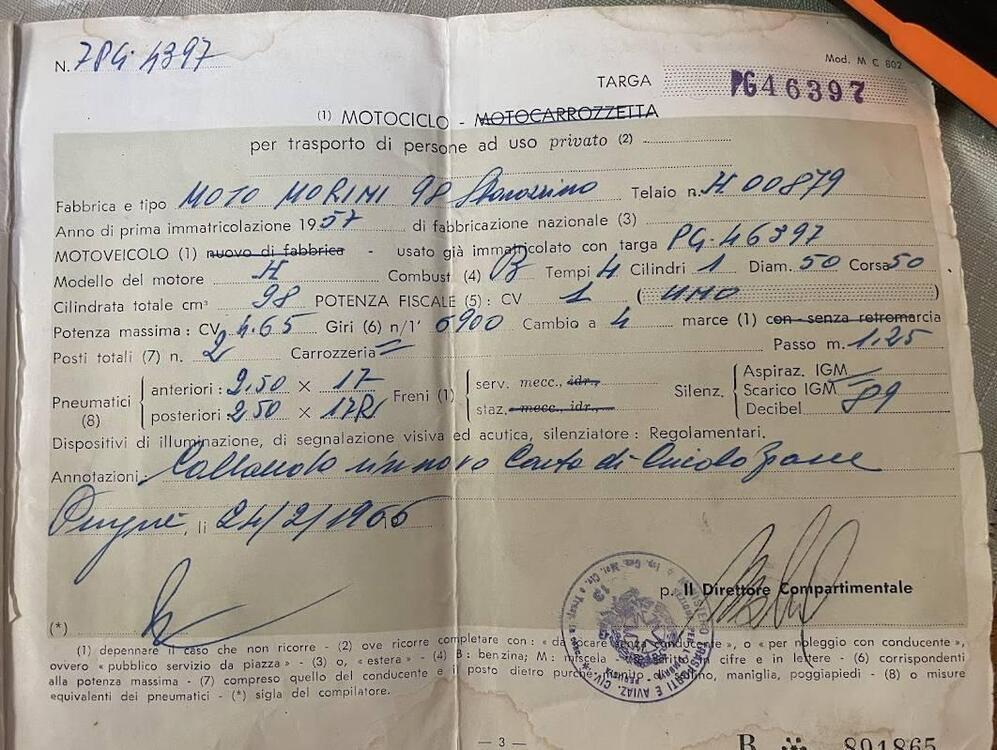 N. 78G. 4397
Mod. M C 802
TARGA PG46397
(1) MOTOCICLO - MOTOCARROZZETTA
per trasporto di persone ad uso privato (2) -
Fabbrica e tipo MOTO MORINI 98 Telaio n. H 00879
Anno di prima immatricolazione 1957 di fabbricazione nazionale (3)
MOTOVEICOLO (1) nuovo di fabbrica - usato già immatricolato con targa PG. 46397
Modello del motore H Combust (4) B Tempi 4 Cilindri 1 Diam. 50 Corsa 50
Cilindrata totale cm³ 98 POTENZA FISCALE (5) : CV 1 ( UNO )
Potenza massima : CV 4.65 Giri (6) n/1' 6900 Cambio a 4 marce (1) con - senza retromarcia
Posti totali (7) n. 2 Carrozzeria = Passo m. 1.25
Pneumatici (8) anteriori : 2.50 × 17 Freni (1) serv. mecc., idr., Silenz. Aspiraz. IGM
posteriori : 2.50 × 17R staz. mecc., idr., Scarico IGM
Decibel 89
Dispositivi di illuminazione, di segnalazione visiva ed acutica, silenziatore : Regolamentari.
Annotazioni : Collaudo rinnovo Carta di
li 24/2/1966
p. Il Direttore Compartimentale
(*)
(1) depennare il caso che non ricorre - (2) ove ricorre completare con : « da locare senza conducente », o « per noleggio con conducente »,
ovvero « pubblico servizio da piazza » - (3) o, « estera » - (4) B : benzina; M : miscela in cifre e in lettere - (6) corrispondenti
alla potenza massima - (7) compreso quello del conducente e il posto dietro purchè munito di sellino, maniglia, poggiapiedi - (8) o misure
equivalenti dei pneumatici - (*) sigla del compilatore.
— 3 —
B 891865